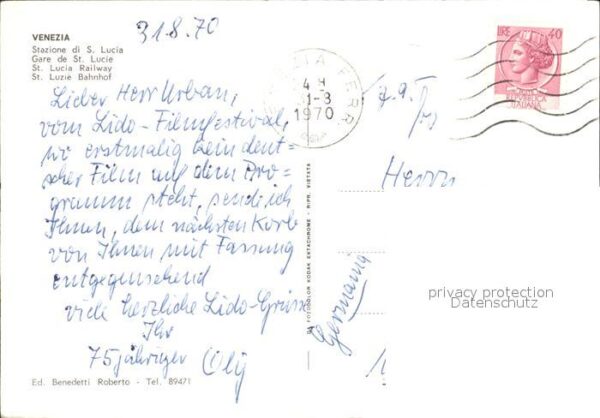 VENEZIA
Stazione di S. Lucia
Gare de St. Lucie
St. Lucia Railway
St. Luzie Bahnhof
31.8.70
Lieber Herr Urban,
vom Lido-Filmfestival,
wo erstmalig kein deut-
scher Film auf dem Pro-
gramm steht, sende ich
Ihnen, dem nächsten Korb
von Ihnen mit Fassung
entgegensehend
viele herzliche Lido-Grüsse
Ihr
75jähriger
Ed. Benedetti Roberto - Tel. 89471
FERR
1970
LIRE 40
REPUBBLICA
ITALIANA
Herrn
Germania
FOTOCOLOR KODAK EKTACHROME - RIPR. VIETATA
privacy protection
Datenschutz